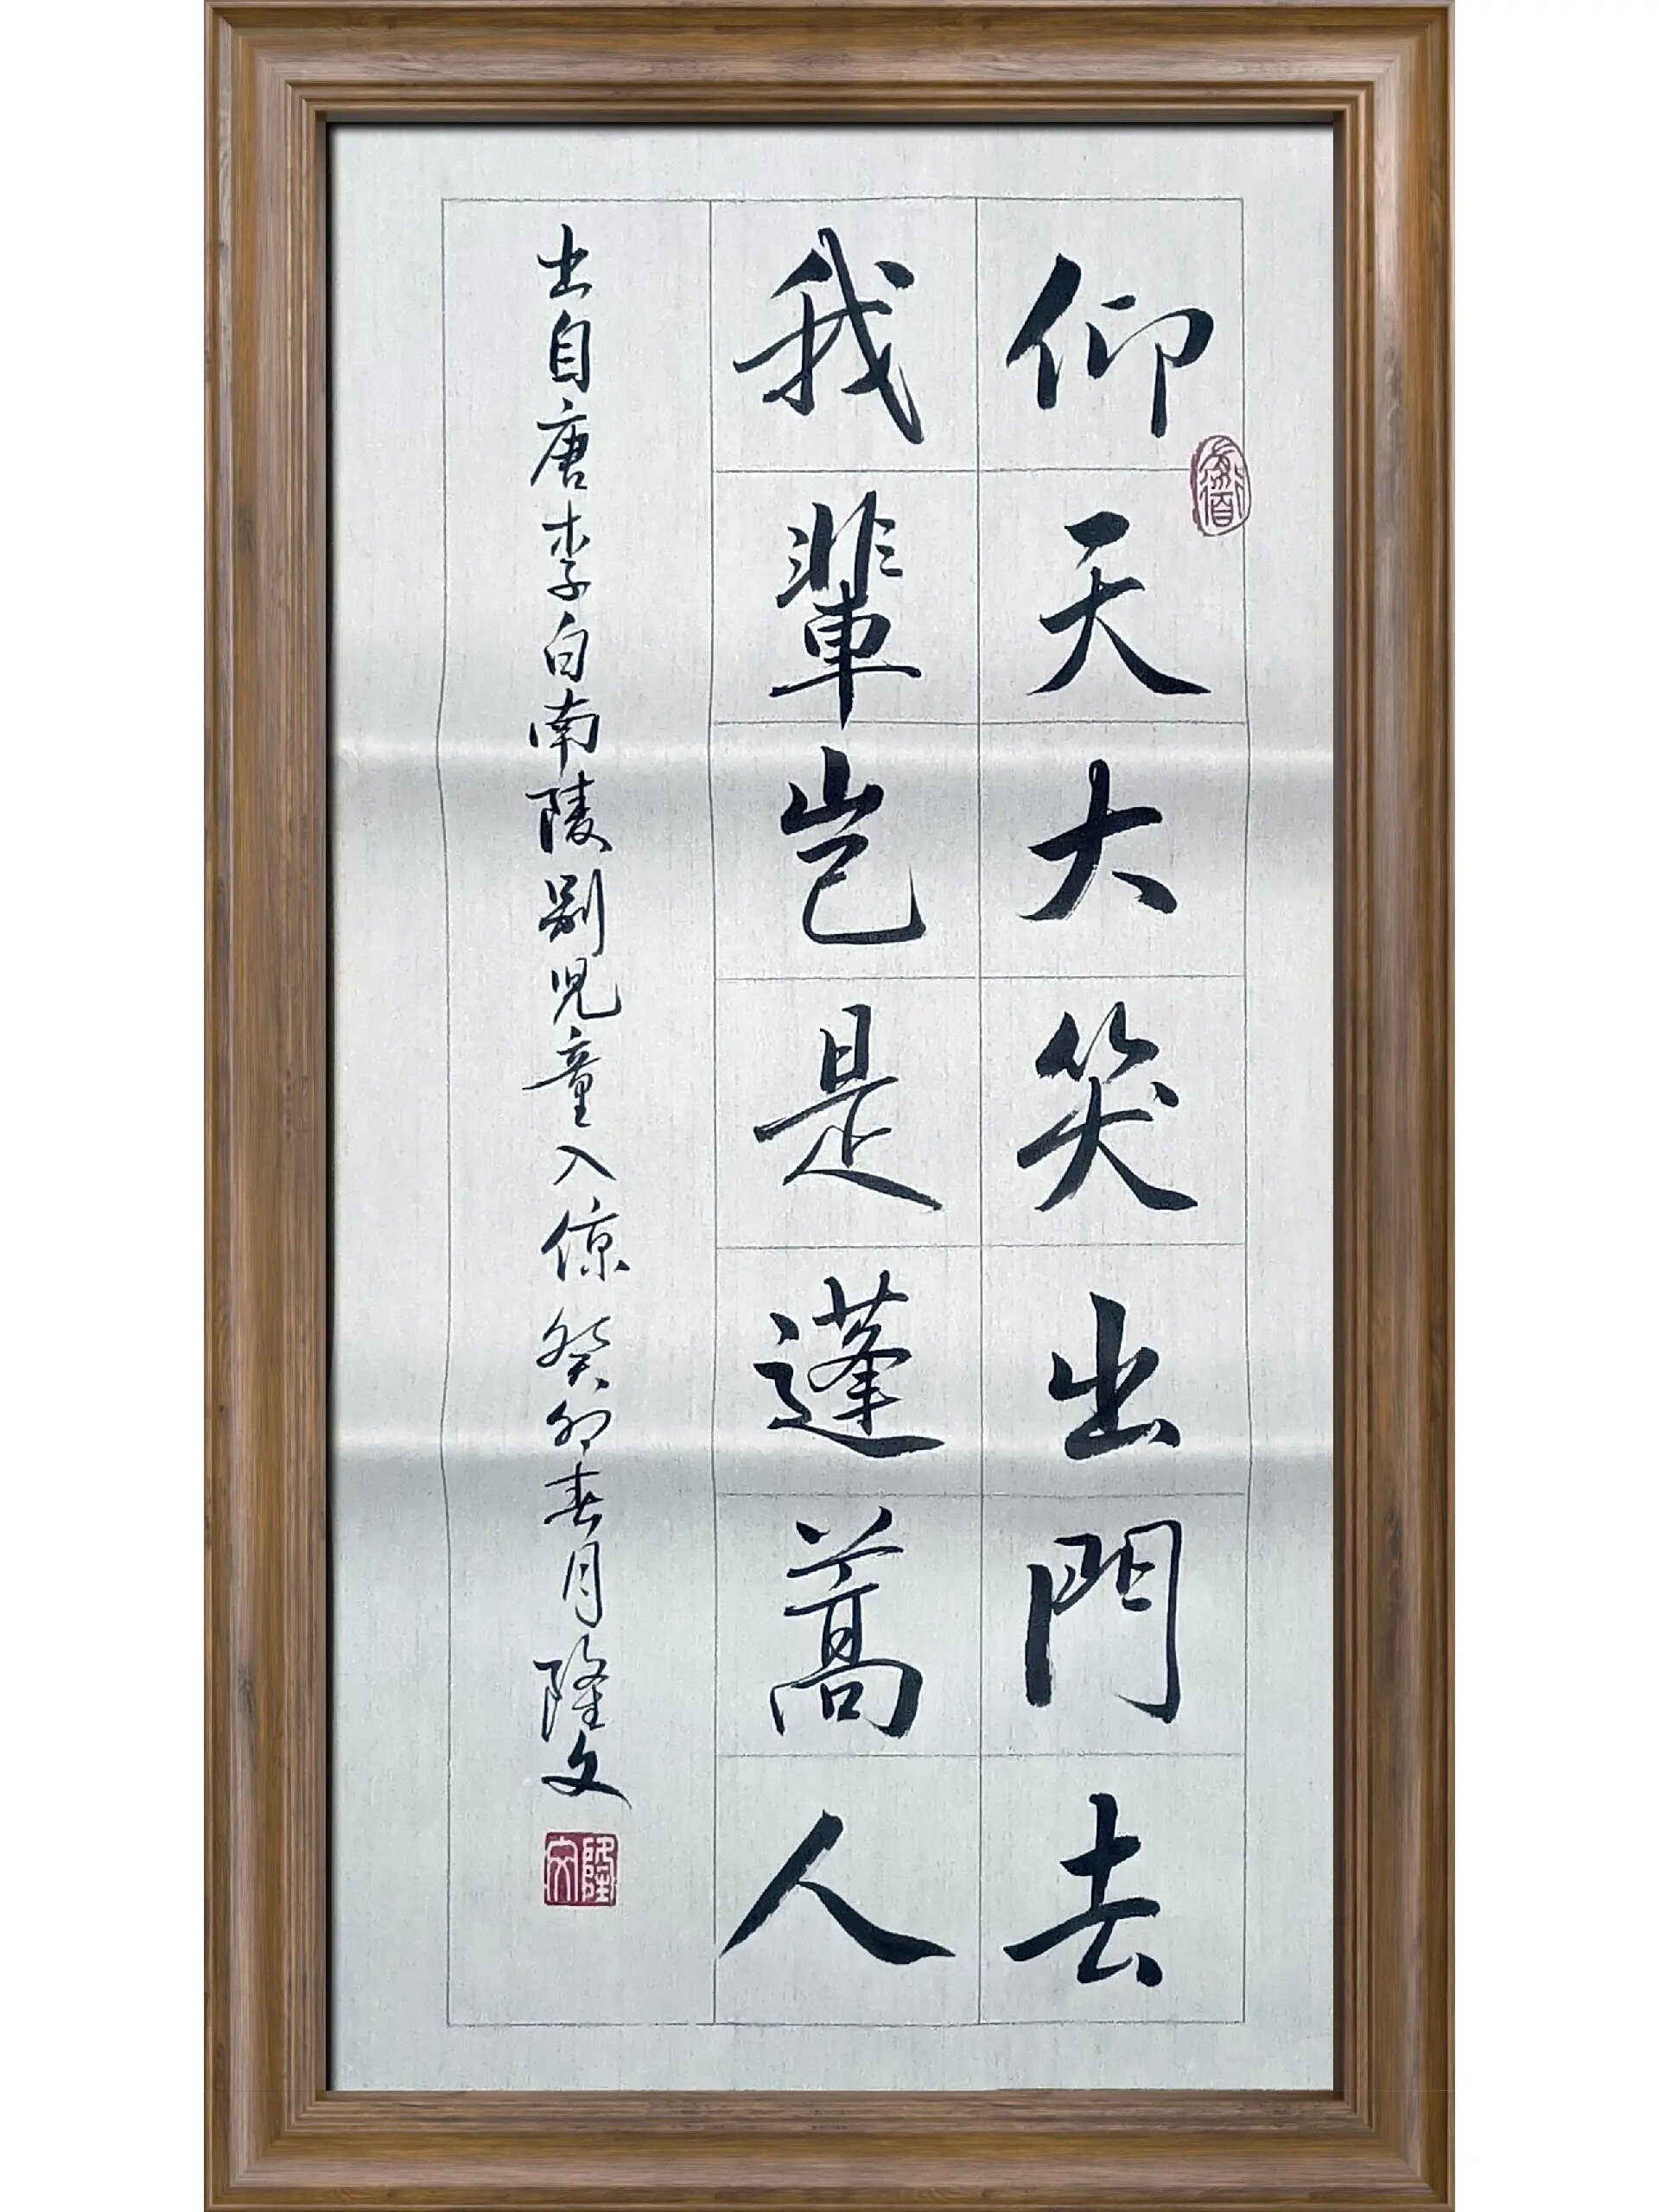 仰天大笑出門去
我輩岂是蓬蒿人
出自唐李白南陵別児童入倞癸卯春月隆文
隆文